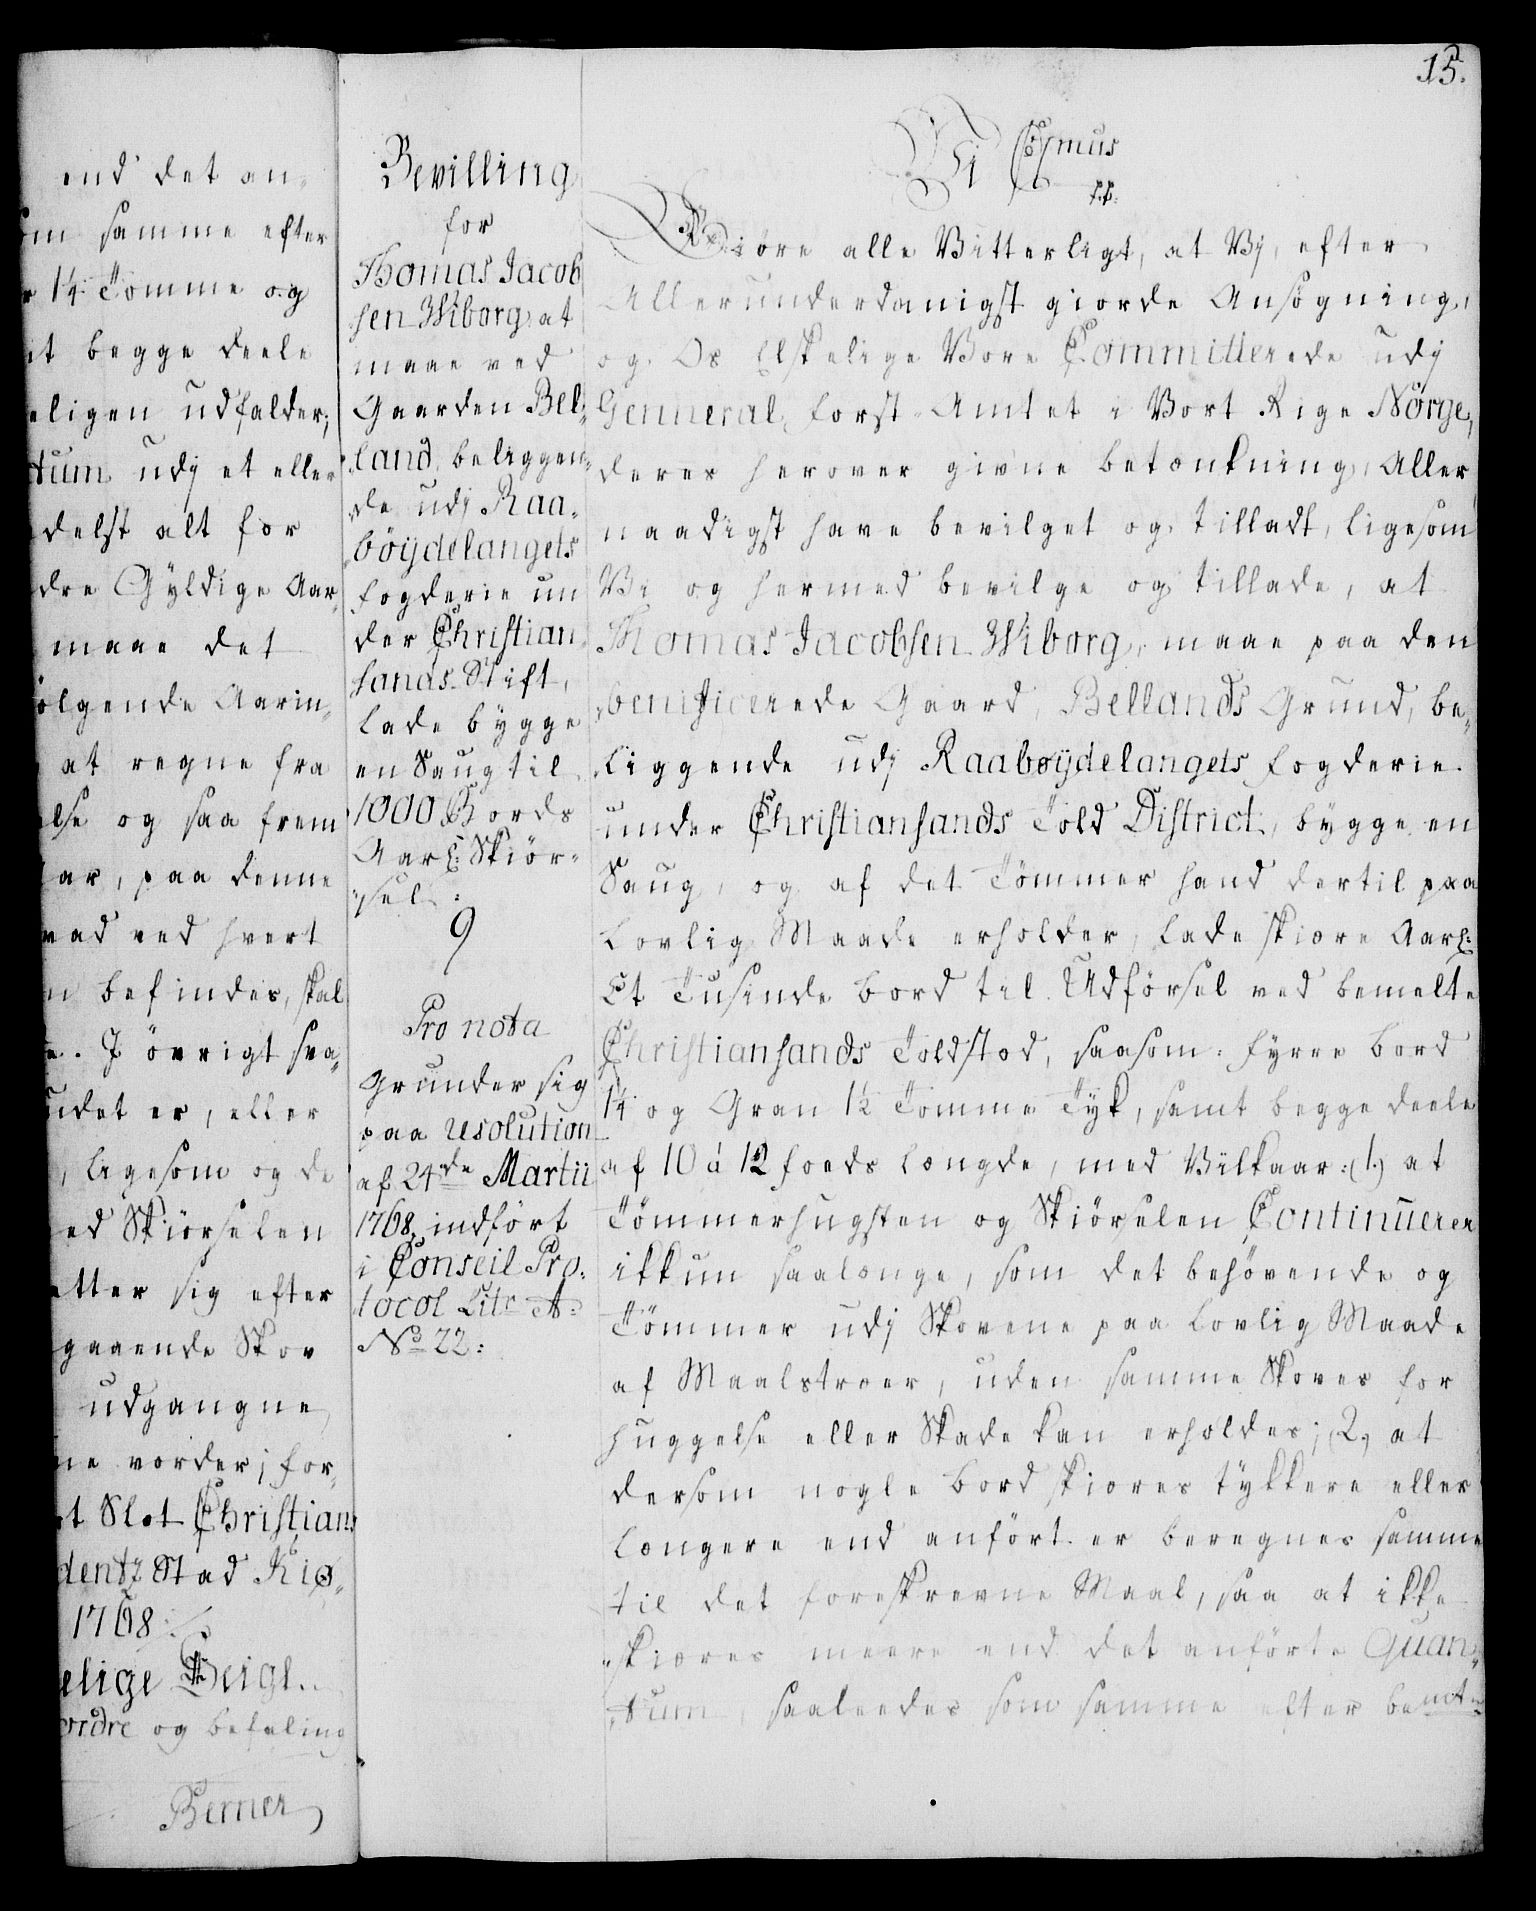 15.
end det an-
om samme efter
r 1¼ Tomme og
et begge deele
eligen udfalder;
tum udj et eller
delst alt for
dre Gyldige Aar,
maae det
ølgende Aarin,
at regne fra
lse og saa frem
ar, paa denne
vad ved hvert
n befindes, skal
e. J øvrigt sva,
udet er, eller
, ligesom og de
ed Skiørselen
etter sig efter
gaaende Skov
udgangne
ne vorder; for,
t Slot Christians
dentz Stad Kiø,
1768
elige Seigl.
ordre og befaling
Berner
Bevilling
for
Thomas Jacob
sen Wiborg, at
maae ved
Gaarden Bel,
land, beliggen,
de udj Raa,
böijdelangets
fogderie un
der Christian,
sands Stift,
lade bygge
en Saug til
1000 Bords
Aarl: Skiör,
sel:
9
Pro nota
grunder sig
paa resolution
af 24de Martii
1768, indført
i Conseil Pro,
tocol Litr A:
No 22:
Vi
tt:
Giøre alle Vitterligt, at Vij, efter
Allerunderdanigst giorde Ansögning,
og Os Elskelige Vore Committerede udj
Genneral, forst-Amtet i Vort Rige Norge,
deres herover givne betænkning, Aller
naadigst have bevilget og tilladt, ligesom
Vi og hermed bevilge og tillade, at
Thomas Jacobsen Wiborg, maae paa den
benificerede Gaard, Bellands Grund, be,
liggende udj Raaböijdelangets fogderie
under Christiansands Told District, bygge en
Saug, og af det Tömmer hand dertil paa
lovlig Maade erholder, lade skiære Aarl:
Et Tusinde bord til Udförsel ved bemelte
Christiansands Toldstæd, saasom: fyrre bord
1¼ og Gran 1½ Tomme Tyk, samt begge deele
af 10 à 12 foeds længde, med Vilkaar: (1.) at
Tömmerhugsten og Skiörselen Continuerer
ikkun saalænge, som det behövende og
Tömmer udj Skovene paa lovlig Maade
af Maalstræer, uden samme Skoves for
huggelse eller Skade kan erholdes; 2.) at
dersom nogle bord skiæres tykkere eller
længere end anfört er beregnes samme
til det foreskrevne Maal, saa at ikke
skiæres meere end det anförte Quan,
tum, saaledes som samme efter bemt: